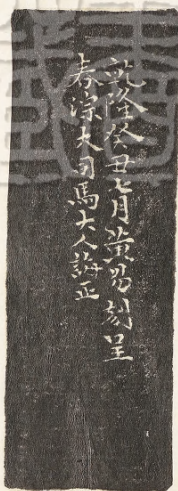 乾隆癸丑七月黄易刻呈
春淙大司馬大人誨正